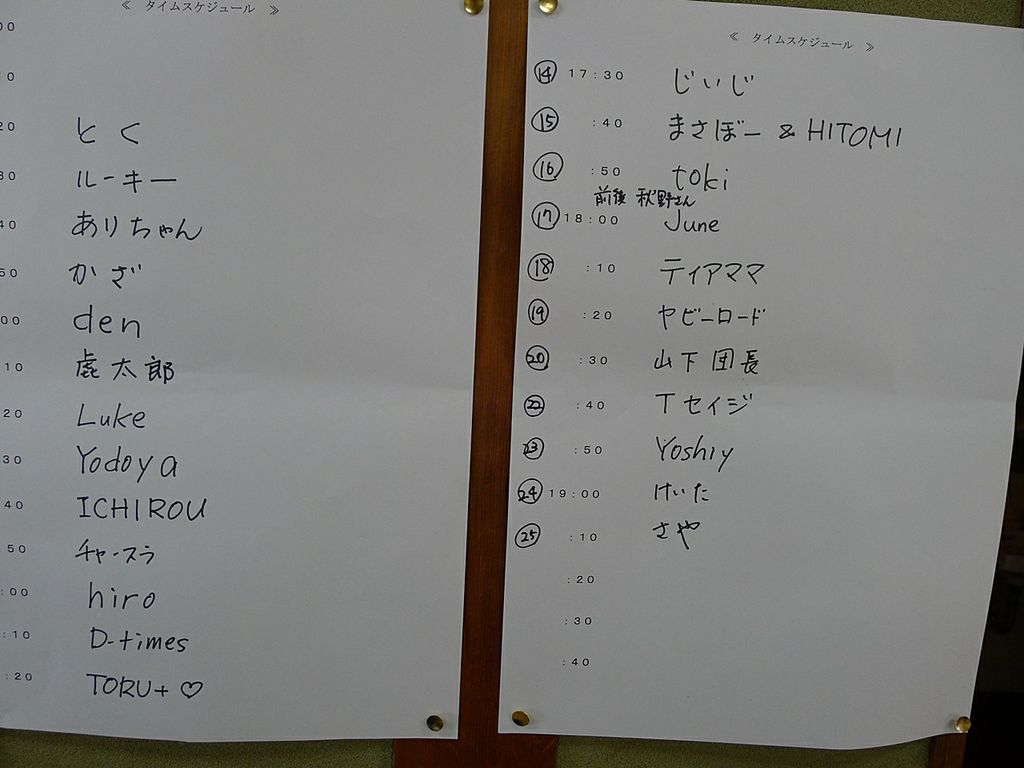 ≪ タイムスケジュール ≫
00
10
20 とく
30 ルーキー
40 ありちゃん
50 かざ
00 den
10 虎太郎
20 Luke
30 Yodoya
40 ICHIROU
50 チャースラ
:00 hiro
:10 D-times
:20 TORU+ ♡
≪ タイムスケジュール ≫
⑭ 17:30 じいじ
⑮ :40 まさぼー & HITOMI
⑯ :50 toki
前後 秋野さん
⑰ 18:00 June
⑱ :10 ティアママ
⑲ :20 ヤビーロード
⑳ :30 山下団長
㉒ :40 Tセイジ
㉓ :50 Yoshiy
㉔ 19:00 けいた
㉕ :10 さや
:20
:30
:40